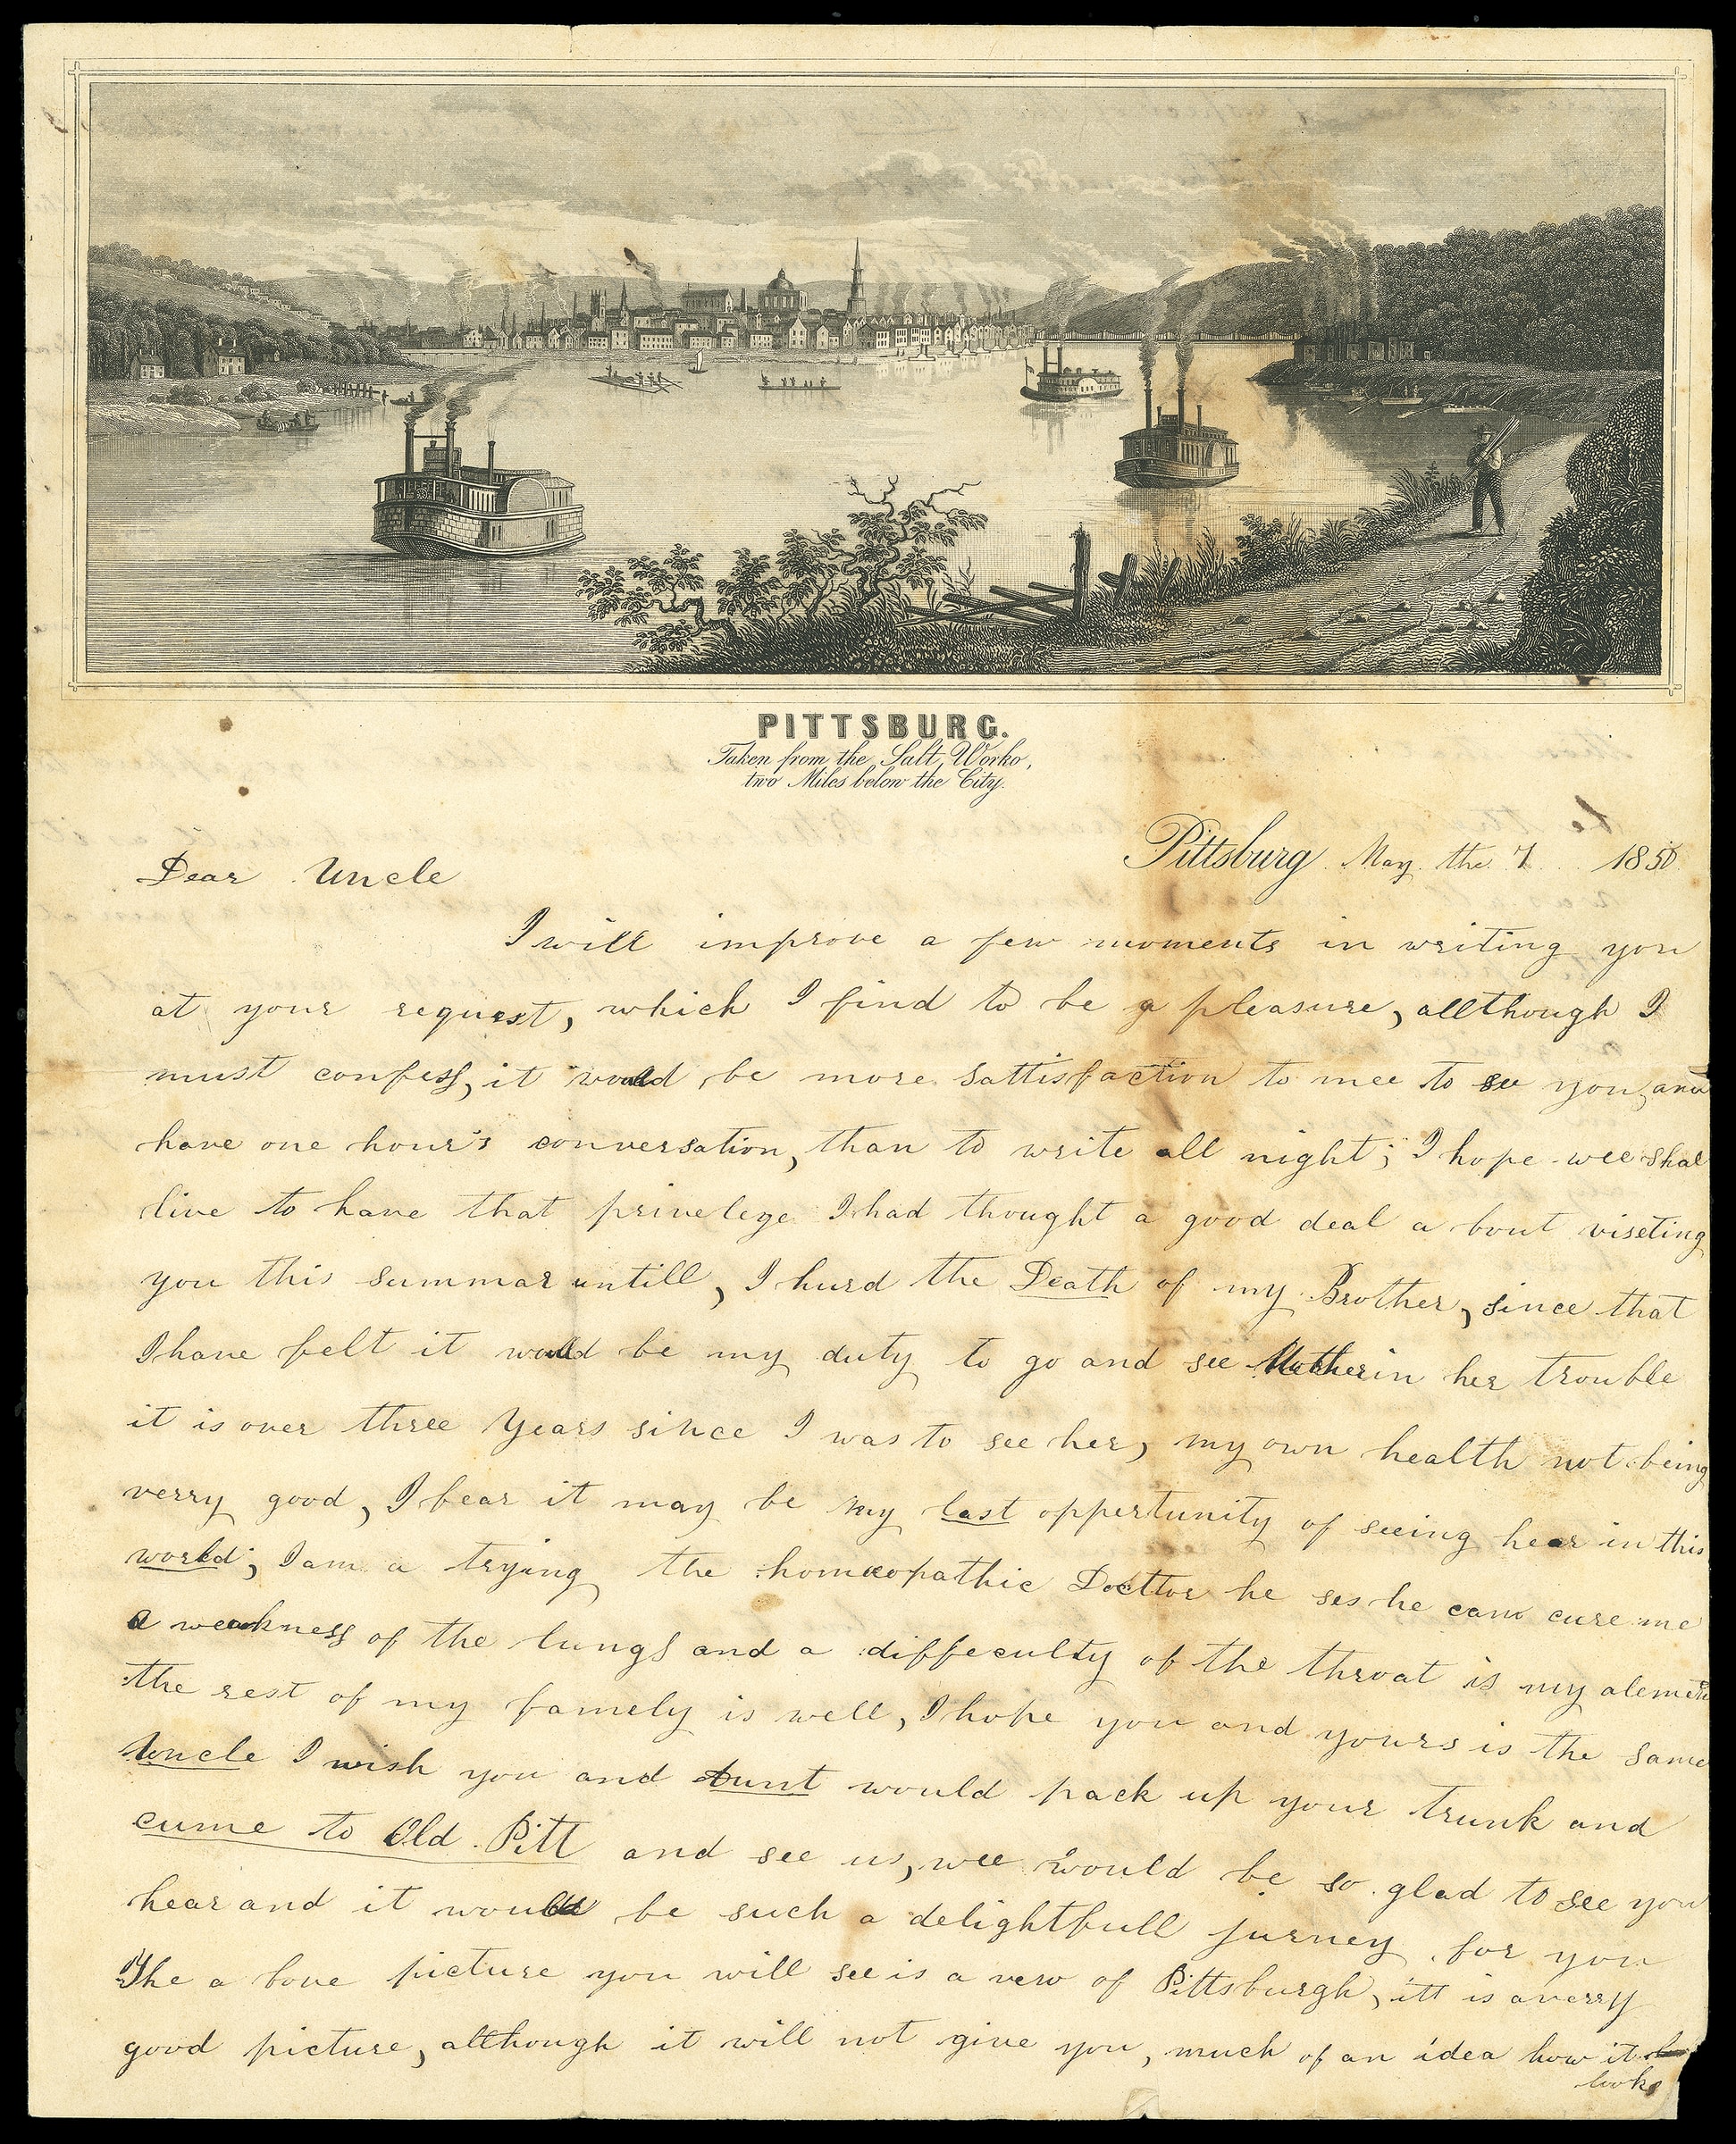 PITTSBURG.
Taken from the Salt Works,
two Miles below the City.
Pittsburg May the 7 1850
Dear Uncle
I will improve a few moments in writing you
at your request, which I find to be a pleasure, allthough I
must confess, it would be more sattisfaction to mee to see you, and
have one hour's conversation, than to write all night; I hope wee shal
live to have that privelege I had thought a good deal a bout viseting
you this summar untill, I hurd the Death of my Brother, since that
I have felt it would be my duty to go and see Mother in her trouble
it is over three Years since I was to see her, my own health not being
verry good, I fear it may be my last oppertunity of seeing hear in this
world; I am a trying the homæopathic Docttor he ses he can cure me
a weakness of the lungs and a diffeculty of the throat is my
the rest of my famely is well, I hope you and yours is the same
Uncle I wish you and Aunt would pack up your trunk and
cume to Old Pitt and see us, wee would be so glad to see you
hear and it would be such a delightfull jurney for you
The a bove picture you will see is a vew of Pittsburgh, itt is a verry
good picture, although it will not give you, much of an idea how it
looks